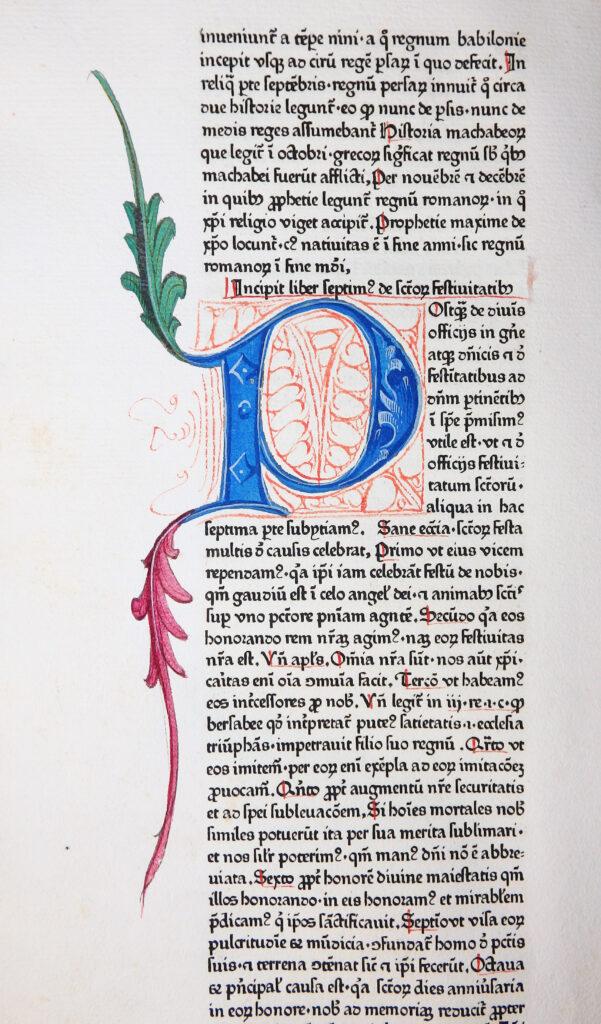 inueniunt̃ a tẽpe nini · a q̃ regnum babilonie
incepit vsq̨ ad cirũ regẽ ꝑsaꝝ ĩ quo defecit. In
reliq̃ pte septẽbris · regnũ persaꝝ innuit̃ q̃ circa
due historie legunt̃ · eo ꝙ nunc de ꝑsis · nunc de
medis reges assumebant̃ Historia machabeoꝝ
que legit̃ ĩ octobri · grecoꝝ sigficat regnũ sb̃ qͥbꝫ
machabei fuerũt afflicti, Per nouẽbrẽ ⁊ decẽbrẽ
in quibꝫ ꝓphetie legunt̃ regnũ romanoꝝ · in q̃
xp̃i religio viget accipit̃. Prophetie maxime de
xp̃o locunt̃ · cꝰ natiuitas ẽ ĩ fine anni · sic regnũ
romanoꝝ ĩ fine mõi,
Incipit liber septimꝰ de sct̃oꝝ festiuitatibꝫ
POstq̃ꝫ de diuĩs
officijs in gñe
atq̨ dñicis ⁊ d̃
festitatibus ad
dñm ꝑtinẽtibꝫ
ĩ sp̃e p̃misimꝰ
vtile est · vt ⁊ d̃
officijs festiui⸗
tatum sct̃orũ ·
aliqua in hac
septima ꝑte subytiamꝰ. Sane eccĩa · sct̃oꝝ festa
multis d̃ causis celebrat, Primo vt eius vicem
rependamꝰ · q̃a ip̃i iam celebrãt festũ de nobis ·
qm̃ gaudiũ est ĩ celo angel̃ dei · ⁊ animabꝫ sct̃iˢ
suꝑ vno pctõre pñiam agñtẽ. Secũdo q̃a eos
honorando rem nr̃aꝫ agimꝰ · naꝫ eoꝝ festiuitas
nr̃a est. Vñ apl̃s. Om̃ia nr̃a sũt · nos aũt xp̃i ·
caĩtas eni oĩa ↄmuĩa facit. Tercõ vt habeamꝰ
eos int̃cessores ꝓ nob̃. Vñ legit̃ in iij · re · ⁊ · c · ꝙ
bersabee qd̃ int̃pretat̃ puteꝰ satietatis · ⁊ · ecclesia
triũphãs · impetrauit filio suo regnũ. Qr̃to vt
eos imitem̃ · per eoꝝ eni exẽpla ad eoꝝ imitacõeꝫ
ꝓuocam̃. Qñto ꝓpt̃ augmentũ nr̃e securitatis
et ad spei subleuacõem, Si hoĩes mortales nob̃
similes potuerũt ita per sua merita sublimari ·
et nos sil̃r poterimꝰ · qm̃ manꝰ dñi nõ ẽ abbre⸗
uiata. Sexto ꝓpt̃ honorẽ diuine maiestatis qm̃
illos honorando · in eis honoramꝰ et mirabl̃em
p̃dicamꝰ q̃ ip̃os sãctificauit. Septĩo vt visa eoꝝ
pulcritudĩe ⁊ mũdicia · ↄfundat̃ homo d̃ pctĩs
suis · ⁊ terrena ↄtẽnat sic̃ ⁊ ip̃i fecerũt, Octaua
⁊ p̃ncipal̃ causa est · q̃a sct̃oꝝ dies anniũsaria
in eoꝝ honore · nob̃ ad memoriaꝫ reducit̃ ꝓpter